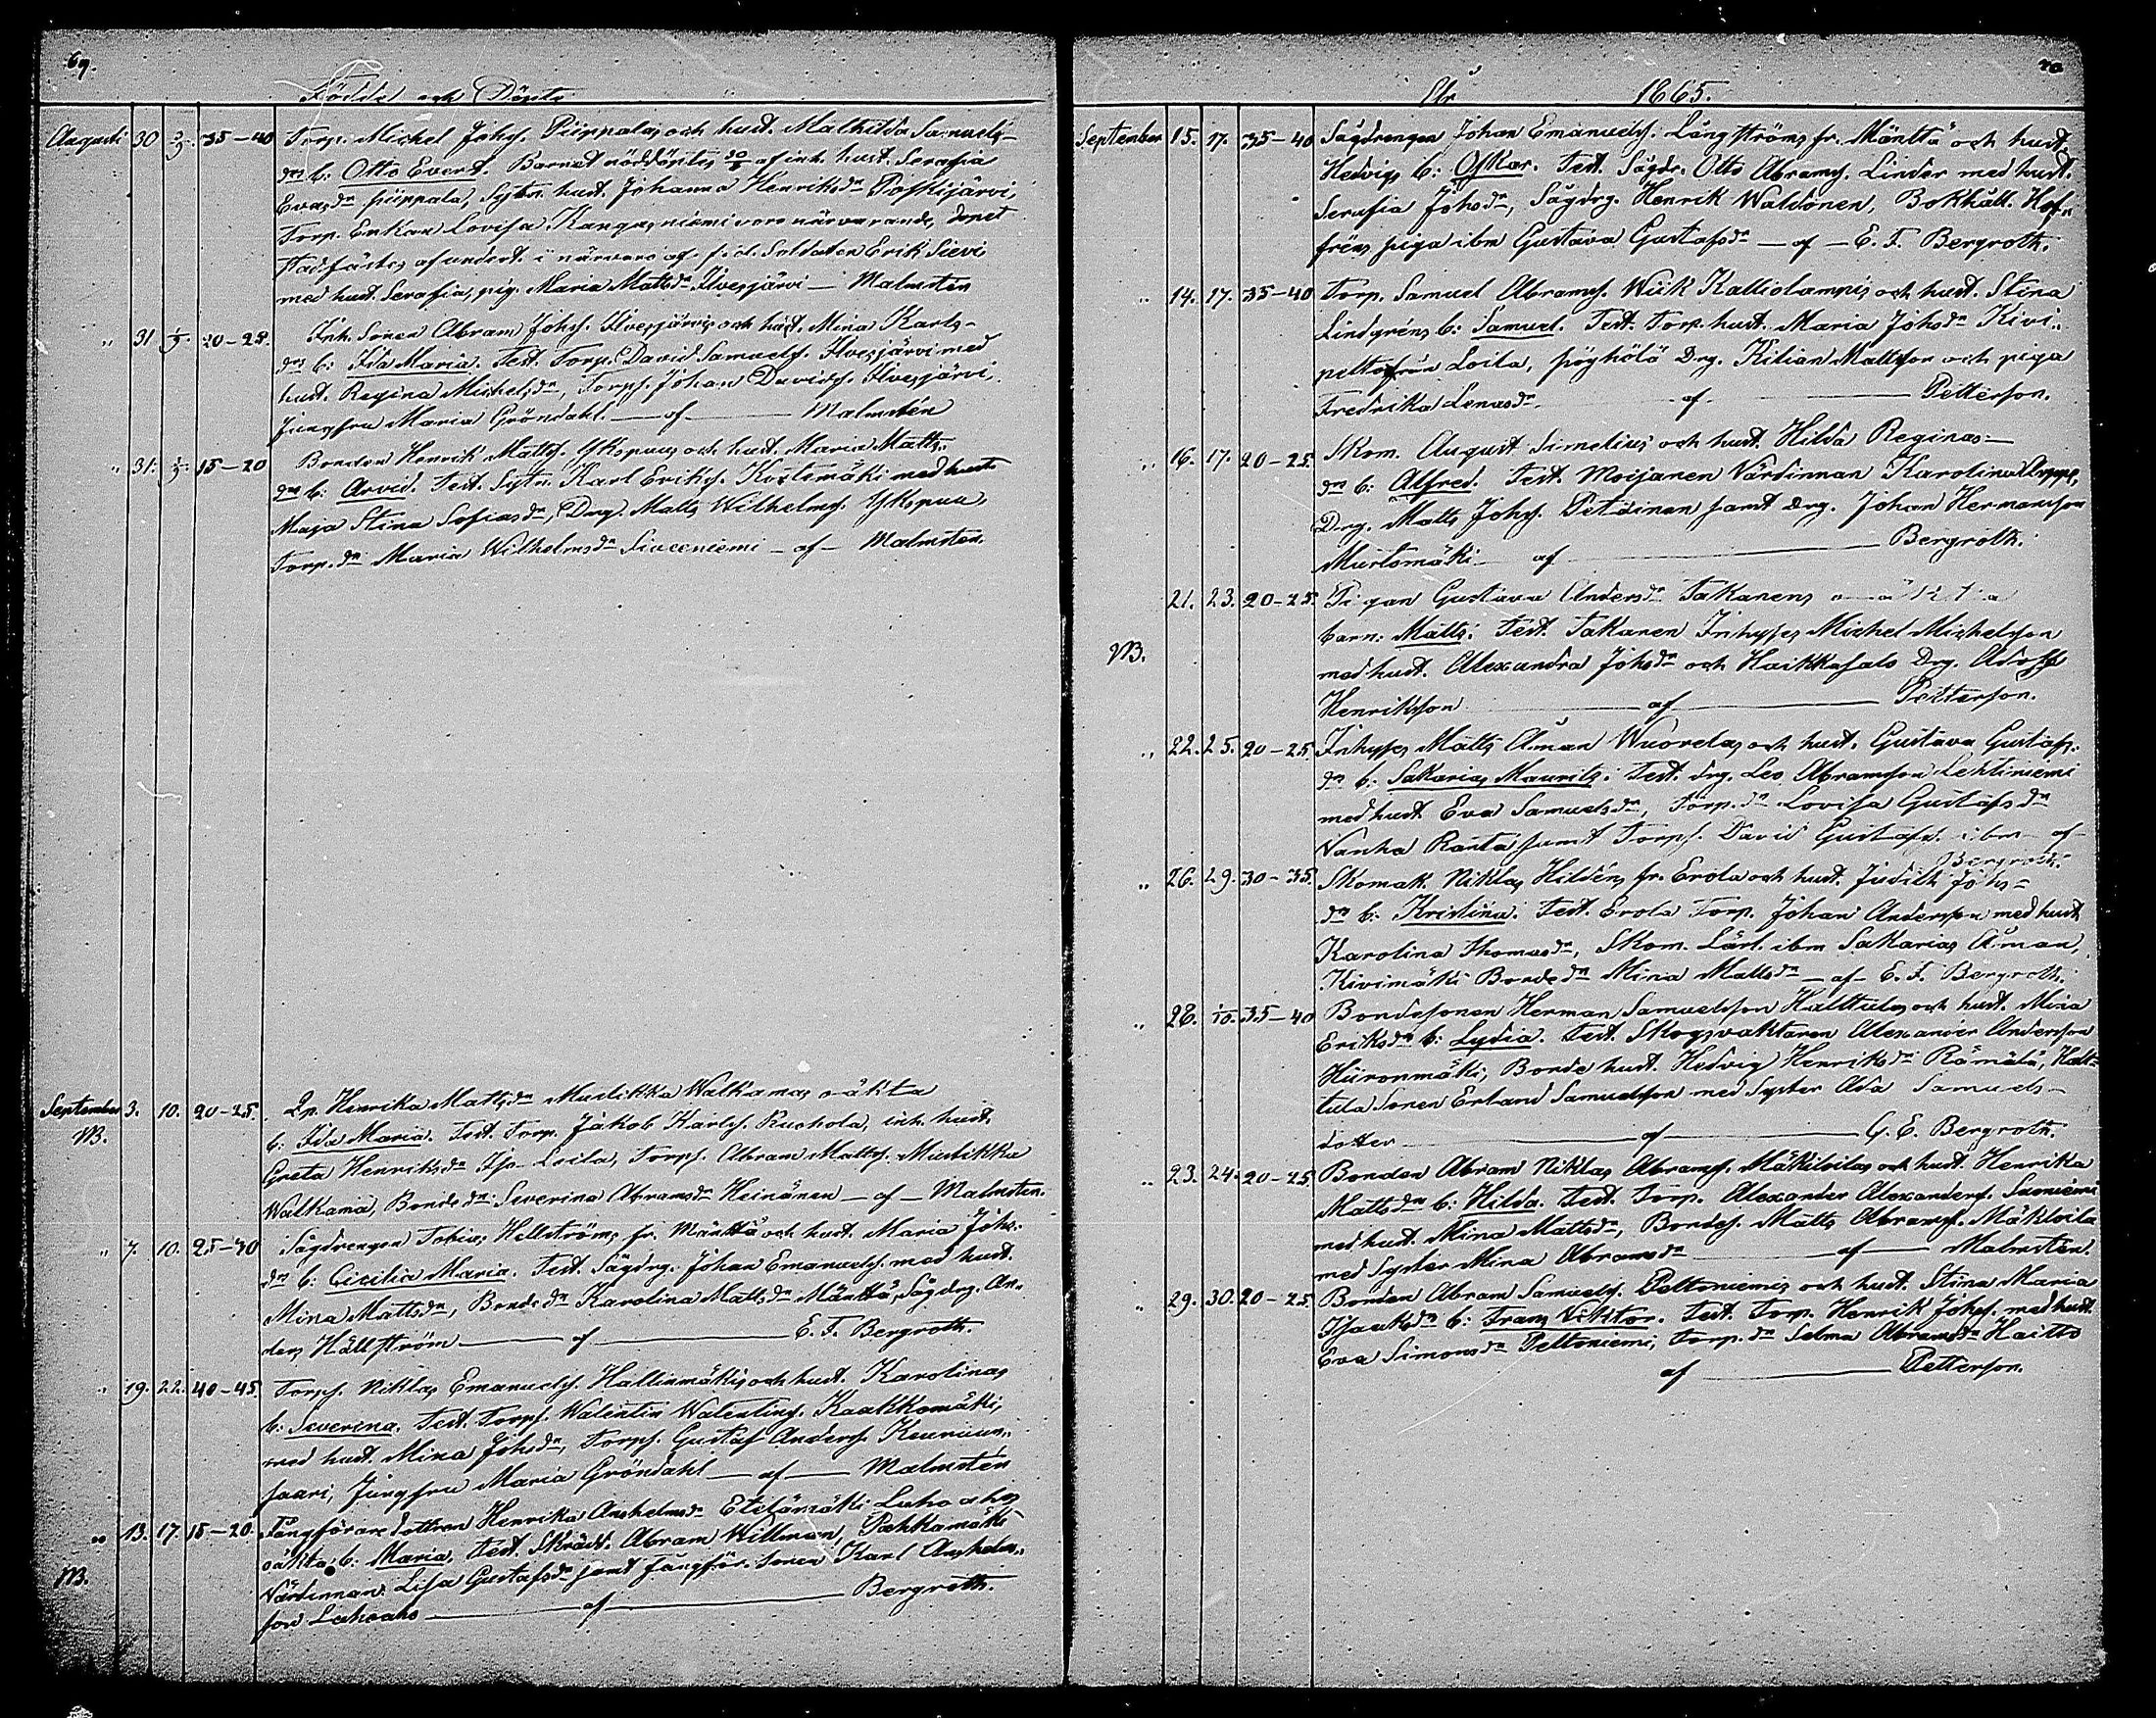 69.
Födde och Döpte
Augusti 30 2/9. 35-40 Torp. Michel Johss. Piippalas och hust. Mathilda Samuels-
dns b: Otto Evert. Barnet nöddöptes 30/8 af inh. hust. Serafia
Evasdn piippala, Sytn. hust. Johanna Henriksdn Poskijärvi,
Torp. Enkan Lovisa Kangasniemi voro närvarande, dopet
stadfästes af undert. i närvaro af f.d. Soldaten Erik Sievi
med hust. Serafia, pig. Maria Mattsdn Ilvesjärvi — Malmstén
" 31 1/9. 20-25. Inh. Sonen Abram Johss. Ilvesjärvis och hust. Mina Karls-
dns b: Ida Maria. Test. Torp. David Samuelss. Ilvesjärvi med
hust. Regina Michelsdn, Torps. Johan Davidss. Ilvesjärvi,
Jungfru Maria Gröndahl. — af — Malmstén
" 31. 15-20 Bonden Henrik Mattss. Yskspuus och hust. Maria Matts„
dns b: Arvid. Test. Sytn. Karl Erikss. Koslmäki med hust.
Maja Stina Sofiasdn, Drng. Matts Wilhelmss. Yskspuu,
Torp. dn Maria Wilhelmsdn Siveeniemi — af — Malmstén.
September 3. 10. 20-25. Qp. Henrika Mattsdn Mustikka Walkamas oäkta
NB. b: Ida Maria. Test. Torp. Jakob Karlss. Ruohola, inh. hust.
Greta Henriksdn Iso-Loila, Torps. Abram Mattss. Mustikka
Walkama, Bonde dn: Severina Abramsdn Heinänen — af — Malmstén.
" 7. 10. 25-40 Sågdrengen Tobias Hellströms fr. Mänttä och hust. Maria Johs.
dns b: Cicilia Maria. Test. Sågdrg. Johan Emanuelss. med hust.
Mina Mattsdn, Bonde dn Karolina Mattsdn Mänttä, Sågdrg. An„
ders Hällström — af — E. F. Bergroth.
" 19. 22. 40-45. Torps. Niklas Emanuelss. Hallinmäkis och hust. Karolinas
b: Severina. Test. Torps. Walentin Walentins. Kaakkomäki,
med hust. Mina Johsdn, Torps. Gustaf Anderss. Keuruun„
saari, Jungfru Maria Gröndahl — af — Malmstén
" 13. 17. 15-20. Fångförare dottren Henrika Anshelmsdn Etelämäki Luhoahos
oäkta b: Maria, Test. Skrädt. Abram Willman, Pahkamäki
NB. Värdinnan: Lisa Gustafsdn samt fångför. sonen Karl Anshelms„
son Luhoaho — af — Bergroth.
70
År 1865.
September 15. 17. 35-40 Sågdrengen Johan Emanuelss. Långströms fr. Mänttä och hust.
Hedvigs b: Oskar. Test. Sågdr. Otto Abramss. Linder med hust.
Serafia Johsdn, Sågdrg. Henrik Waldonen, Bokhåll. Hof„
fréns piga ibm Gustava Gustafsdn — af — E. F. Bergroth.
" 14. 17. 35-40 Torp. Samuel Abramss. Wiik Kalliolampis och hust. Stina
Lindgréns b: Samuel. Test. Torp. hust. Maria Johsdn Kivi„
pelto från Loila, pöyhölä Drg. Kilian Mattsson och piga
Fredrika Lenasdn — af — Petterson.
" 16. 17. 20-25. Skom. August Simelius och hust. Hilda Reginas-
dns b: Alfred. Test. Moijanen Värdinnan Karolina,
Drg. Matts Johss. Petäinen samt drg. Johan Hermansson
Murtomäki — af — Bergroth.
21. 23. 20-25. Pigan Gustava Andersdn Takanens oäkta
NB. barn: Matts: Test. Takanen Inhyses Michel Michelsson
med hust. Alexandra Johsdn och Haikkasalo Drg. Adolf
Henriksson — af — Petterson.
" 22. 25. 20-25. Inhyses Matts Åman Wuorelas och hust. Gustava Gustafs.
dn b: Sakarias Maurits: Test. drg. Leo Abramsson Lehtiniemi
med hust. Eva Samuelsdn, Torp. dn Lovisa Gustafsdn
Vanha Ranta samt Torps. David Gustafss. ibm af
Bergroth.
" 26. 29. 30-35. Skomak. Niklas Hildéns fr. Erola och hust. Judith Johs-
dn b: Kristina. Test. Erola Torp. Johan Andersson med hust.
Karolina Thomasdn, Skom. Lärl. ibm Sakarias Åman,
Kivimäki Bonde dn Mina Mattsdn — af — E. F. Bergroth.
" 28. 1/10. 35-40 Bondesonen Herman Samuelsson Halttulas och hust. Mina
Eriksdn b: Lydia. Test. Skogsvaktaren Alexander Andersson
Hiironmäki, Bonde hust. Hedvig Henriksdn Rämälä, Halt-
tula Sonen Erland Samuelsson med Syster Ada Samuels-
dotter — af — G. E. Bergroth.
" 23. 24. 20-25 Bonden Abram Niklas Abramss. Mäkiloilas och hust. Henrika
Mattsdn b: Hilda. Test. Torp. Alexander Alexanderss. Saoniemi
med hust. Mina Mattsdn, Bondes. Matts Abramss. Mäkiloila
med Syster Mina Abramsdn — af — Malmstén.
" 29. 30. 20-25. Bonden Abram Samuelss. Peltoniemis och hust. Stina Maria
Isaaksdn b: Frans Viktor. Test. Torp. Henrik Johss. med hust.
Eva Simonsdn Peltoniemi, Torp. dn Selma Abramsdn Haitto
af — Petterson.